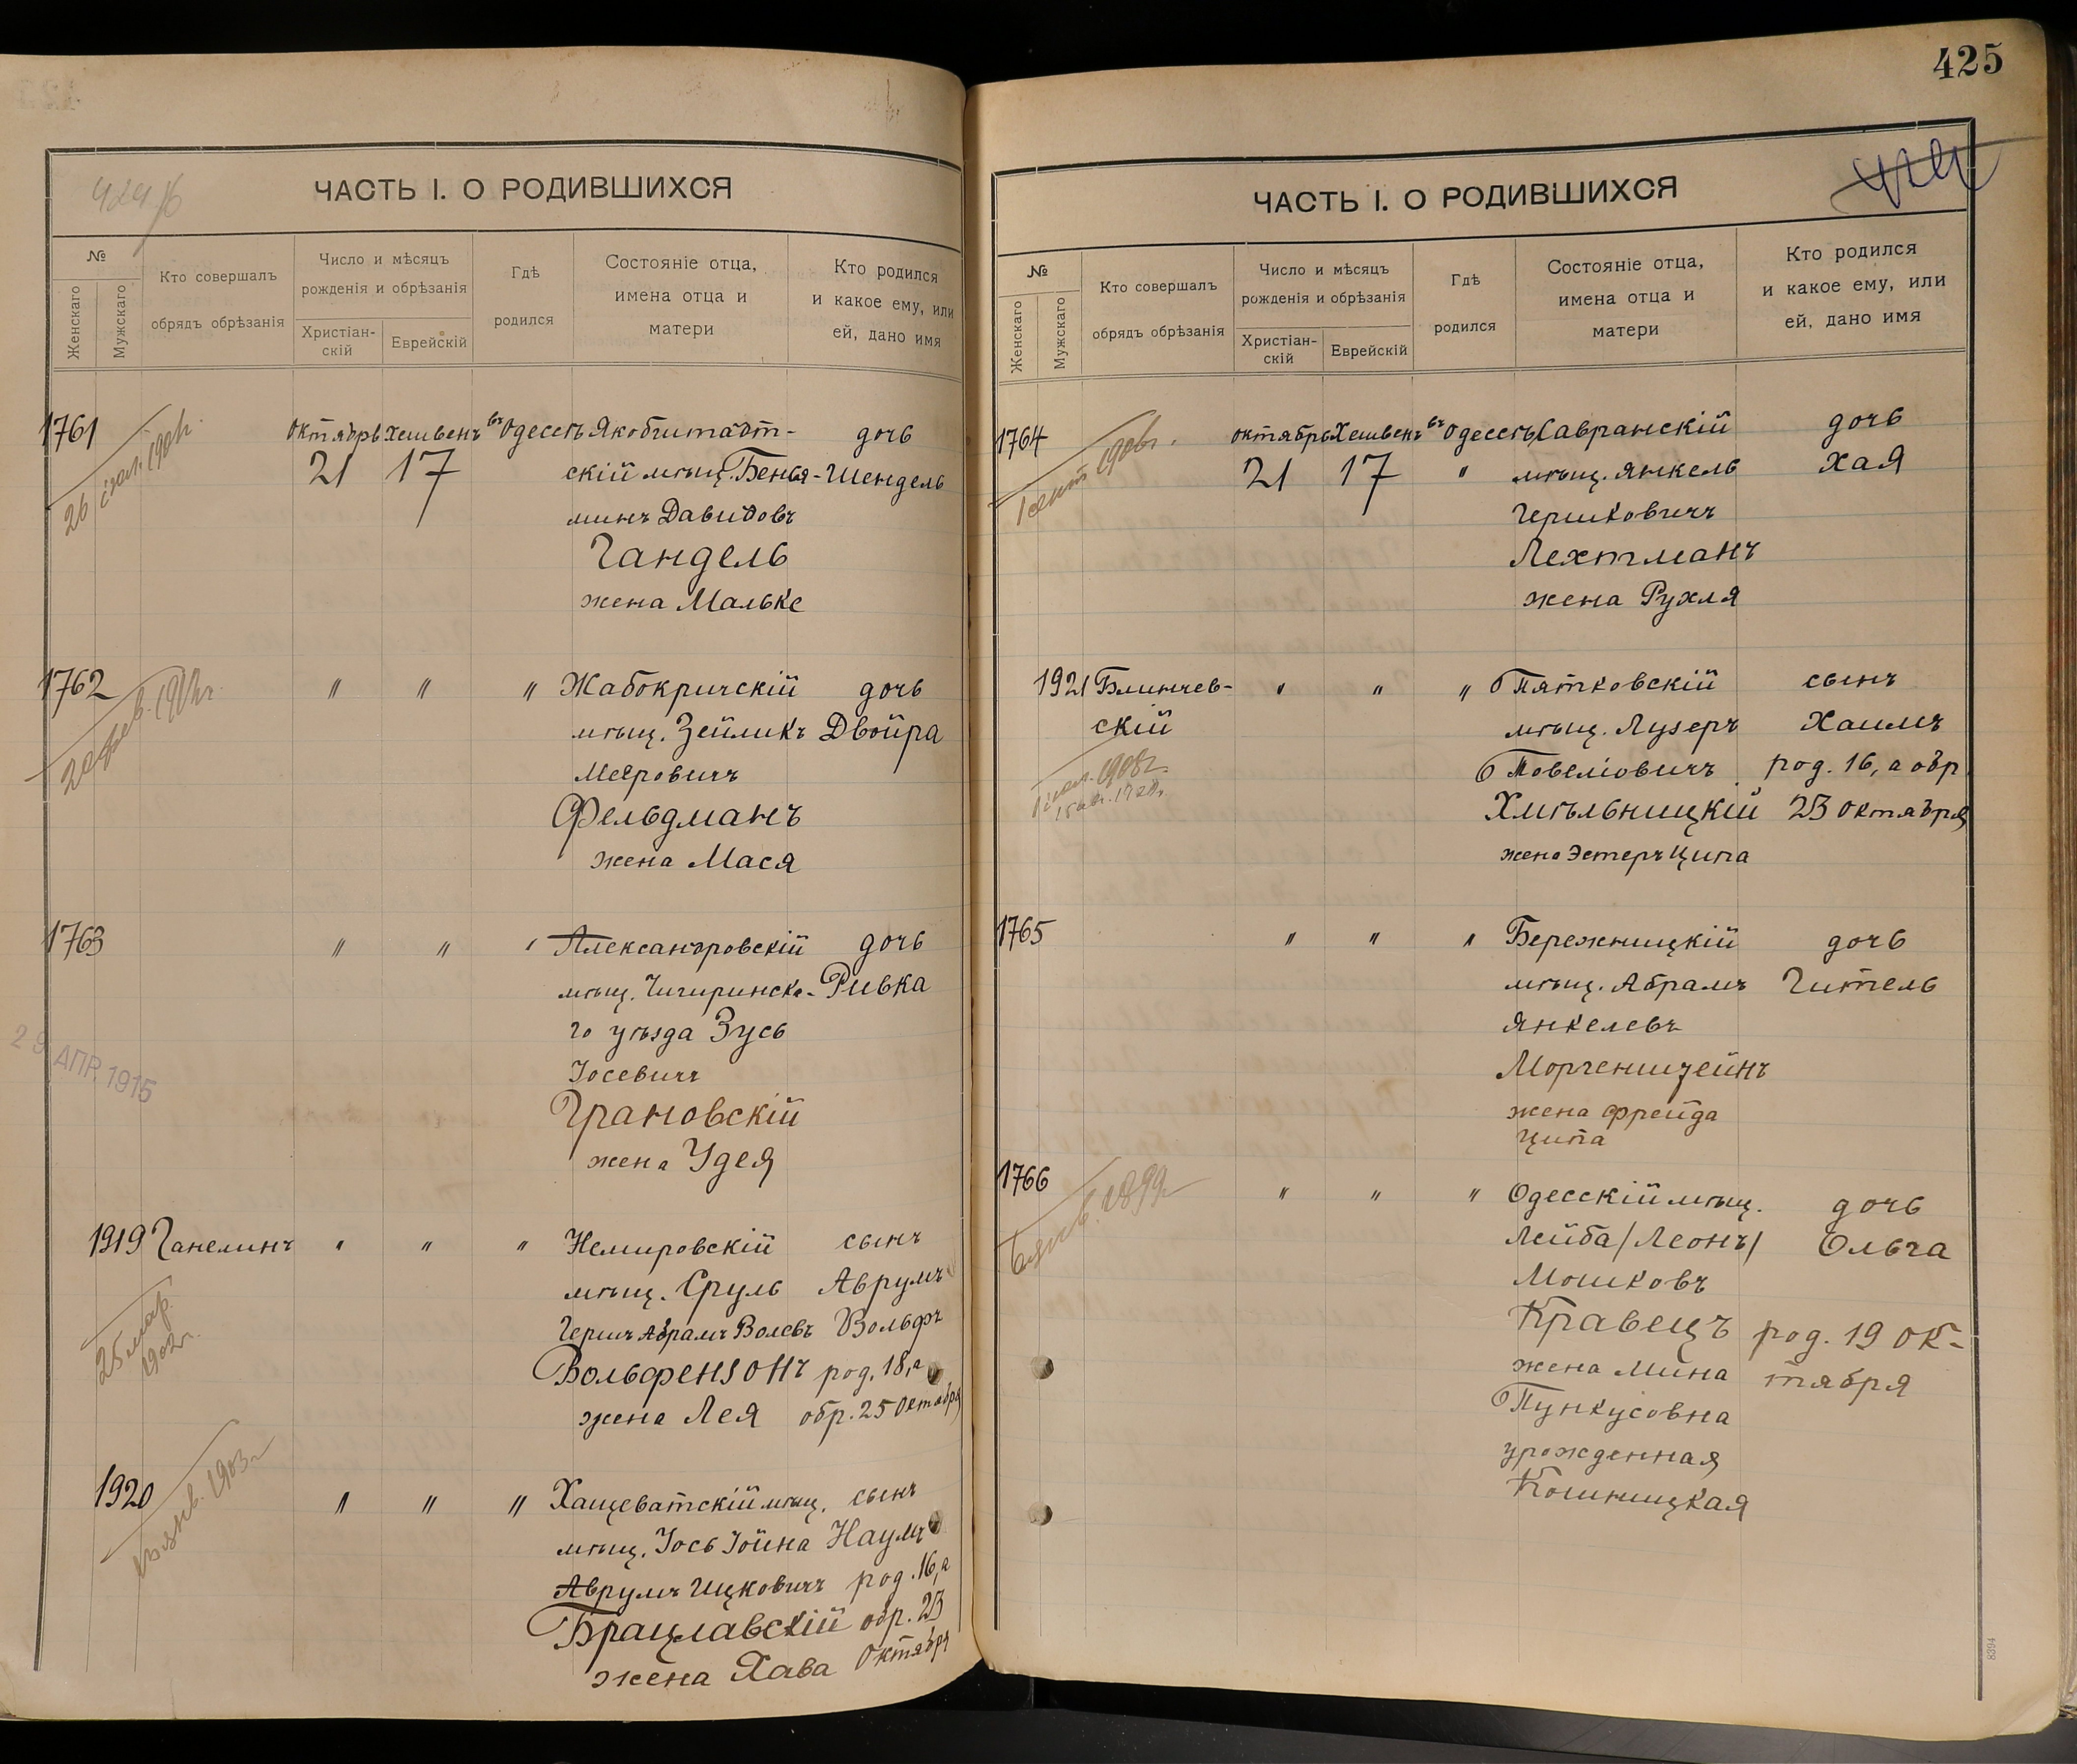 424 б
ЧАСТЬ I. О РОДИВШИХСЯ
№
Женскаго
Мужскаго
Кто совершалъ
обрядъ обрѣзанія
Число и мѣсяцъ
рожденія и обрѣзанія
Христіан-
скій
Еврейскій
Гдѣ
родился
Состояніе отца,
имена отца и
матери
Кто родился
и какое ему, или
ей, дано имя
1761 Октябрь Хешвенъ въ Одессѣ Якобштадт- дочь
21 17 скій мѣщ. Бенья- Шендель
минъ Давидовъ
Гандель
жена Мальке
1762 " " " Жабокричскій дочь
мѣщ. Зейликъ Двойра
Мееровичъ
Фельдманъ
жена Мася
1763 " " " Александровскій дочь
мѣщ. Чигиринска- Ривка
го уѣзда Зусь
Іосевичъ
29 АПР. 1915
Грановскій
жена Удея
1919 Ганелинъ " " " Немировскій сынъ
мѣщ. Сруль Аврумъ
Гершъ Абрамъ Волевъ Вольфъ
25 мар.
1902 г.
Вольфензонъ род. 18, а
жена Лея обр. 25 Октября
1920 " " " Хащеватскій мѣщ. сынъ
1903 г.
мѣщ. Іось Іойна Наумъ
Аврумъ Ицковичъ род. 16, а
Брацлавскій обр. 23
жена Хава Октябр
425
424
ЧАСТЬ I. О РОДИВШИХСЯ
№
Женскаго
Мужскаго
Кто совершалъ
обрядъ обрѣзанія
Число и мѣсяцъ
рожденія и обрѣзанія
Христіан-
скій
Еврейскій
Гдѣ
родился
Состояніе отца,
имена отца и
матери
Кто родился
и какое ему, или
ей, дано имя
1764 октябрь Хешвенъ въ Одессѣ Савранскій дочь
21 17 " мѣщ. Янкель Хая
1 сент. 1906 г.
Гершковичъ
Лехтманъ
жена Рухля
1921 Блинчев- " " " Пятковскій сынъ
скій мѣщ. Лузеръ Хаимъ
1908 г.
Товеліовичъ род. 16, а обр.
Хмѣльницкій 23 октября
жена Эстеръ Ципа
1765 " " " Бережницкій дочь
мѣщ. Абрамъ Гитель
Янкелевъ
Моргенштейнъ
жена Фрейда
Ципа
1766 " " " Одесскій мѣщ. дочь
1899 г.
Лейба /Леонъ/ Ольга
Мошковъ
Кравецъ род. 19 ок-
жена Мина тября
Пункусовна
урожденная
Кошницкая
8394